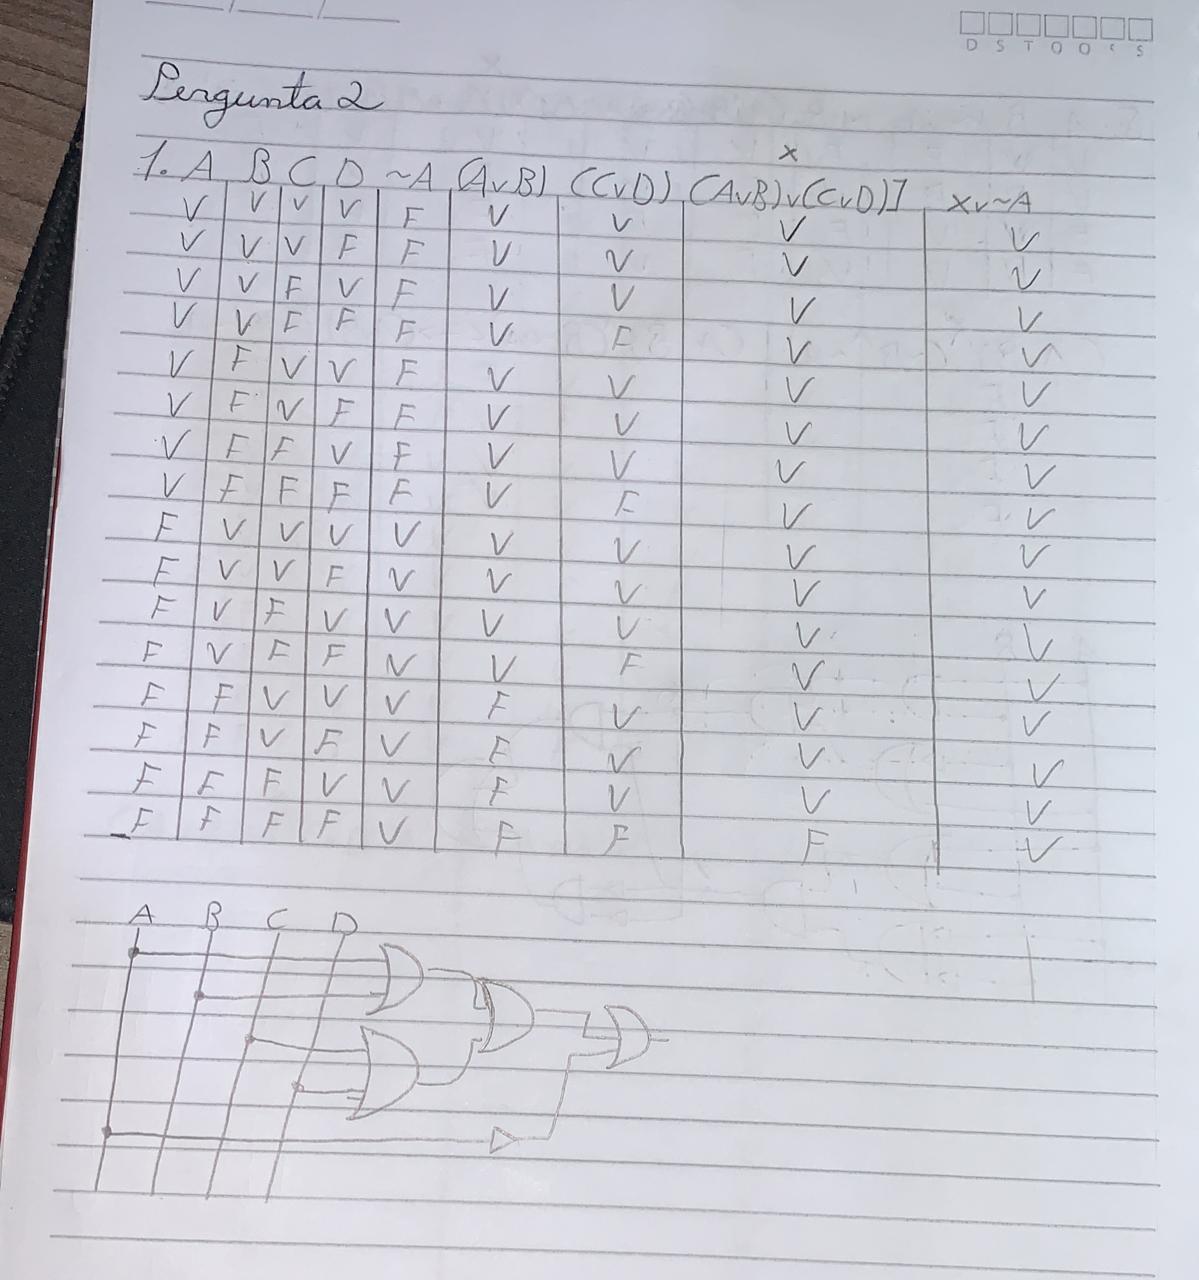 D S T Q Q S S
Pergunta 2
x
1. A B C D ~A (AvB) (CvD) (AvB)v(CvD)] xv~A
V V V V F V V V V
V V V F F V V V V
V V F V F V V V V
V V F F F V F V V
V F V V F V V V V
V F V F F V V V V
V F F V F V V V V
V F F F F V F V V
F V V V V V V V V
F V V F V V V V V
F V F V V V V V V
F V F F V V F V V
F F V V V F V V V
F F V F V F V V V
F F F V V F V V V
F F F F V F F F V
A B C D